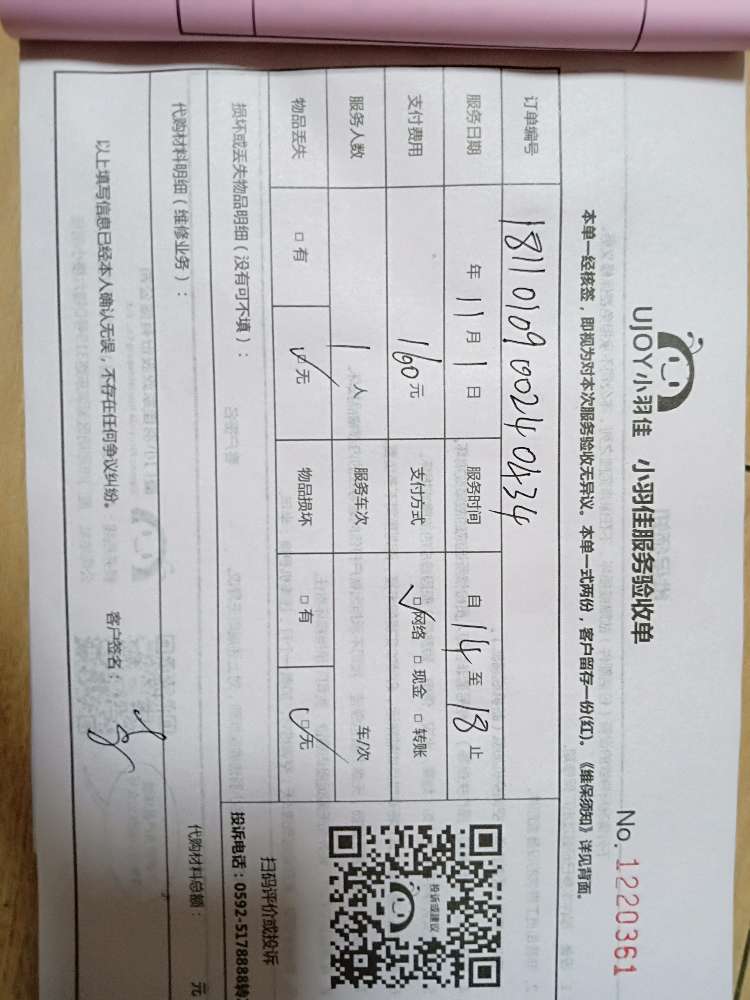 UJOY小羽佳 小羽佳服务验收单
No. 1220361
本单一经核签，即视为对本次服务验收无异议。本单一式两份，客户留存一份(红)。《维保须知》详见背面。
订单编号 1811010900240434
服务日期 年 11 月 1 日 服务时间 自 14 至 18 止
支付费用 160 元 支付方式 ☑网络 □现金 □转账
服务人数 1 人 服务车次 车/次
物品丢失 □有 ☑无 物品损坏 □有 ☑无
损坏或丢失物品明细（没有可不填）：
代购材料明细（维修业务）： 代购材料总额： 元
以上填写信息已经本人确认无误，不存在任何争议纠纷。 客户签名：
投诉或建议
扫码评价或投诉
投诉电话：0592-5178888转